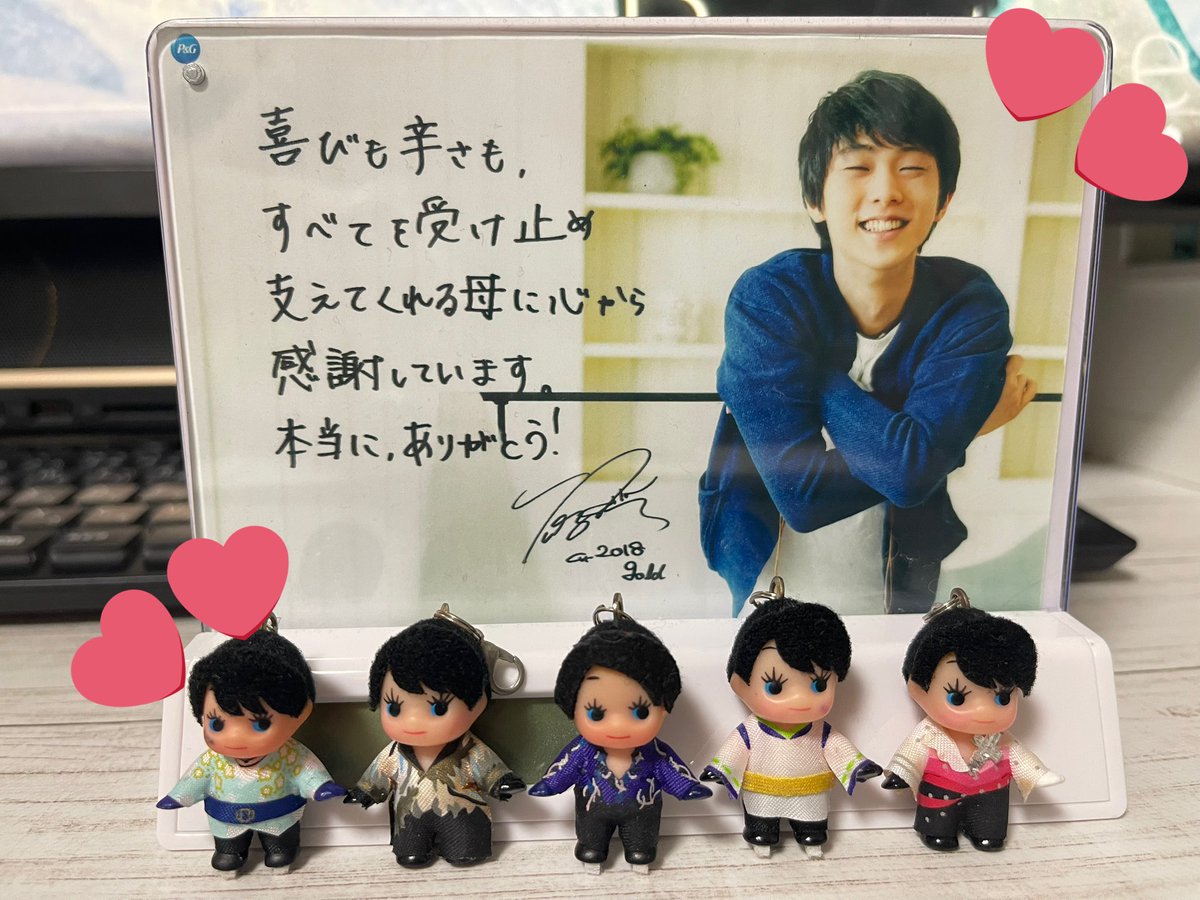 P&G
喜びも辛さも,
すべてを受け止め
支えてくれる母に心から
感謝しています。
本当に,ありがとう!
2018
gold